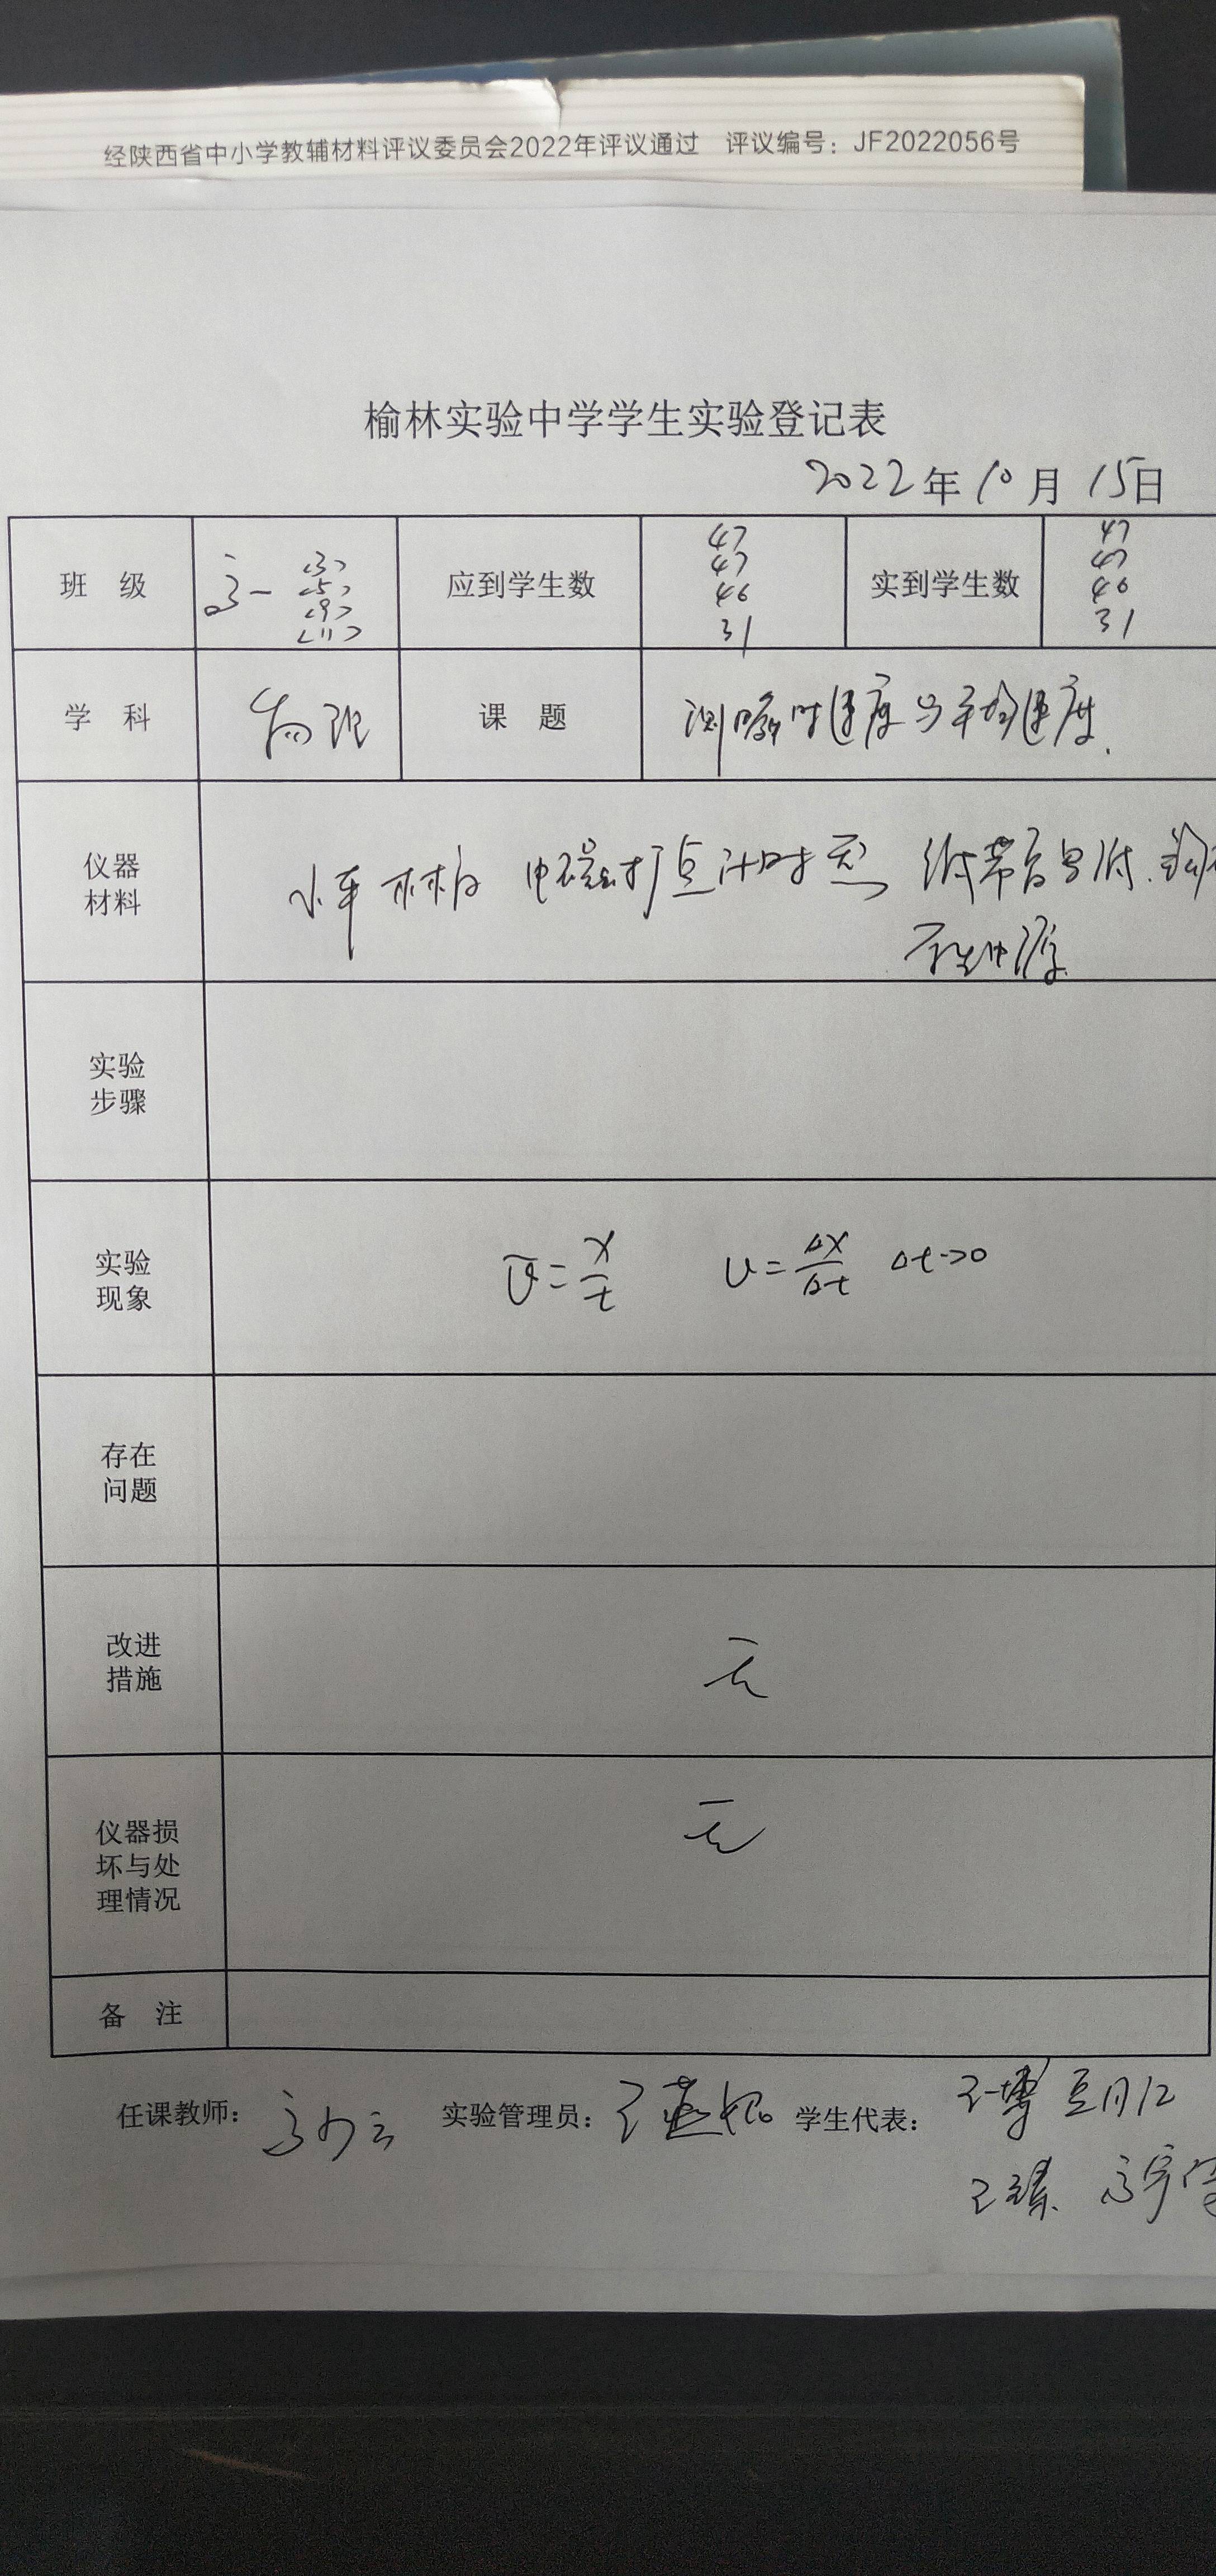 经陕西省中小学教辅材料评议委员会2022年评议通过 评议编号：JF2022056号
榆林实验中学学生实验登记表
2022年10月15日
班 级 高一 〈3〉 〈5〉 〈9〉 〈11〉 应到学生数 47 47 46 31 实到学生数 47 47 46 31
学 科 物理 课 题 测瞬时速度与平均速度.
仪器
材料
小车 木板 电磁打点计时器 纸带
电源
实验
步骤
实验
现象
v̄=x/t v=Δx/Δt Δt→0
存在
问题
改进
措施
无
仪器损
坏与处
理情况
无
备 注
任课教师： 实验管理员： 学生代表： 王博
王臻